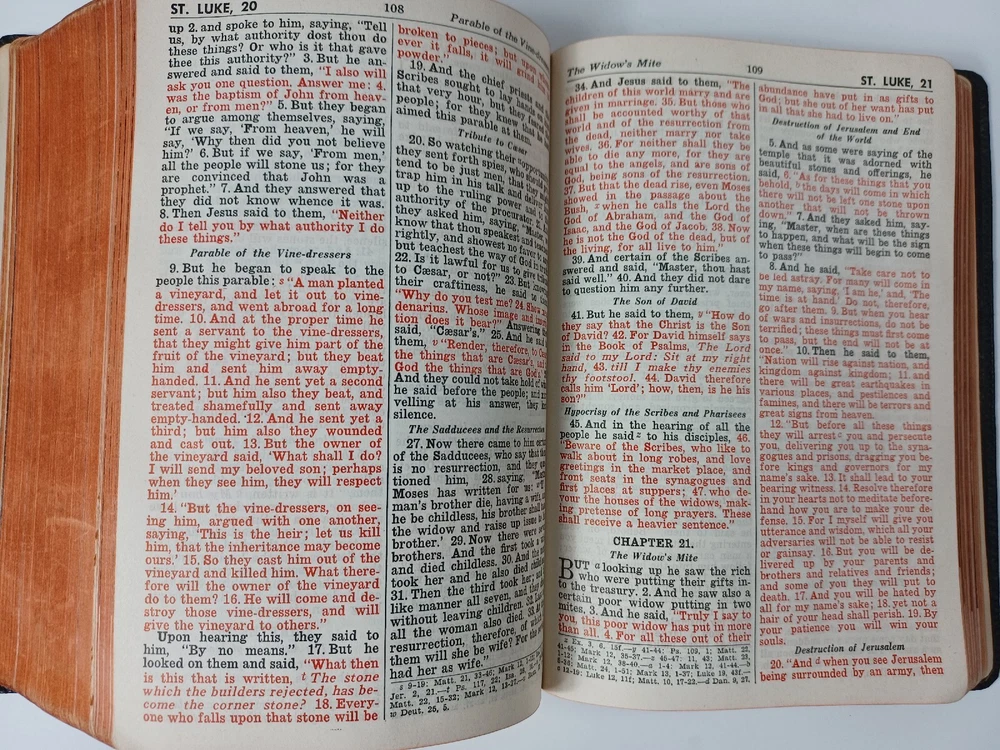 ST. LUKE, 20
108
Parable of the Vine-
up 2. and spoke to him, saying, "Tell
us, by what authority dost thou do
these things? Or who is it that gave
thee this authority?" 3. But he an-
swered and said to them, "I also will
ask you one question. Answer me: 4.
was the baptism of John from heav-
en, or from men?" 5. But they began
to argue among themselves, saying,
"If we say, 'From heaven,' he will
say, 'Why then did you not believe
him?' 6. But if we say, 'From men,'
all the people will stone us; for they
are convinced that John was a
prophet." 7. And they answered that
they did not know whence it was.
8. Then Jesus said to them, "Neither
do I tell you by what authority I do
these things."
Parable of the Vine-dressers
9. But he began to speak to the
people this parable: s "A man planted
a vineyard, and let it out to vine-
dressers, and went abroad for a long
time. 10. And at the proper time he
sent a servant to the vine-dressers,
that they might give him part of the
fruit of the vineyard; but they beat
him and sent him away empty-
handed. 11. And he sent yet a second
servant; but him also they beat, and
treated shamefully and sent away
empty-handed. 12. And he sent yet a
third; but him also they wounded
and cast out. 13. But the owner of
the vineyard said, 'What shall I do?
I will send my beloved son; perhaps
when they see him, they will respect
him.'
14. "But the vine-dressers, on see-
ing him, argued with one another,
saying, 'This is the heir; let us kill
him, that the inheritance may become
ours.' 15. So they cast him out of the
vineyard and killed him. What there-
fore will the owner of the vineyard
do to them? 16. He will come and de-
stroy those vine-dressers, and will
give the vineyard to others."
Upon hearing this, they said to
him, "By no means." 17. But he
looked on them and said, "What then
is this that is written, t The stone
which the builders rejected, has be-
come the corner stone? 18. Every-
one who falls upon that stone will be
broken to pieces; but upon
ever it falls, it will grind
powder."
19. And the chief priests and
Scribes sought to lay hands
that very hour, but they
people; for they knew that
aimed this parable at them.
Tribute to Cæsar
20. So watching their opportunity
they sent forth spies, who should
tend to be just men, that they
trap him in his talk and
up to the ruling power and
authority of the procurator.
they asked him, saying,
know that thou speakest and
rightly, and showest no favor
but teachest the way of God in
22. Is it lawful for us to give
to Cæsar, or not?" 23. But
their craftiness, he said to
"Why do you test me? 24. Show
denarius. Whose image and
tion does it bear?" Answering
said, "Cæsar's." 25. And he said
them, v "Render, therefore, to
the things that are Cæsar's, and
God the things that are God's."
And they could not take hold of
he said before the people; and
velling at his answer, they
silence.
The Sadducees and the Resurrection
27. Now there came to him
of the Sadducees, who say that
is no resurrection, and they
tioned him, 28. saying,
Moses has written for us:
man's brother die, having a wife,
he be childless, his brother shall
the widow and raise up issue
brother.' 29. Now there were
brothers. And the first took a
and died childless. 30. And the
took her and he also died
31. Then the third took her;
like manner all seven, and they
without leaving children.
all the woman also died.
resurrection, therefore, of which
them will she be wife? For the
had her as wife."
s 9-19: Matt. 21, 33-46; Mark 12, 1-12;
Jer. 2, 21.—t Ps. 117, 22; Isa.
Matt. 22, 15-32; Mark 12, 13-27.
w Deut. 25, 5.
The Widow's Mite
109
ST. LUKE, 21
34. And Jesus said to them, "The
children of this world marry and are
given in marriage. 35. But those who
shall be accounted worthy of that
world and of the resurrection from
the dead, neither marry nor take
wives. 36. For neither shall they be
able to die any more, for they are
equal to the angels, and are sons of
God, being sons of the resurrection.
37. But that the dead rise, even Moses
showed in the passage about the
Bush, x when he calls the Lord the
God of Abraham, and the God of
Isaac, and the God of Jacob. 38. Now
he is not the God of the dead, but of
the living, for all live to him."
39. And certain of the Scribes an-
swered and said, "Master, thou hast
said well." 40. And they did not dare
to question him any further.
The Son of David
41. But he said to them, y "How do
they say that the Christ is the Son
of David? 42. For David himself says
in the Book of Psalms, The Lord
said to my Lord: Sit at my right
hand, 43. till I make thy enemies
thy footstool. 44. David therefore
calls him 'Lord'; how, then, is he his
son?"
Hypocrisy of the Scribes and Pharisees
45. And in the hearing of all the
people he said z to his disciples, 46.
"Beware of the Scribes, who like to
walk about in long robes, and love
greetings in the market place, and
front seats in the synagogues and
first places at suppers; 47. who de-
vour the houses of the widows, mak-
ing pretense of long prayers. These
shall receive a heavier sentence."
CHAPTER 21.
The Widow's Mite
BUT a looking up he saw the rich
who were putting their gifts in-
to the treasury. 2. And he saw also a
certain poor widow putting in two
mites, 3. And he said, "Truly I say to
you, this poor widow has put in more
than all. 4. For all these out of their
x Ex. 3, 6, 15f.—y 41-44: Ps. 109, 1; Matt. 22,
41-45; Mark 12, 35-37.—z 45-47: 11, 43; Matt. 23,
6-30; Mark 12, 38-40.—a 1-4: Mark 12, 41-44.—b
5-20: Matt. 24, 1-51; Mark 13, 1-37; Luke 19, 43f.—
c 12-19: Luke 12, 11f; Matt. 10, 17-22.—d Dan. 9, 27.
abundance have put in as gifts to
God; but she out of her want has put
in all that she had to live on."
Destruction of Jerusalem and End
of the World
5. And as some were saying of the
temple that it was adorned with
beautiful stones and offerings, he
said, 6. "As for these things that you
behold, b the days will come in which
there will not be left one stone upon
another that will not be thrown
down." 7. And they asked him, say-
ing, "Master, when are these things
to happen, and what will be the sign
when these things will begin to come
to pass?"
8. And he said, "Take care not to
be led astray. For many will come in
my name, saying, 'I am he,' and, 'The
time is at hand.' Do not, therefore,
go after them. 9. But when you hear
of wars and insurrections, do not be
terrified; these things must first come
to pass, but the end will not be at
once." 10. Then he said to them,
"Nation will rise against nation, and
kingdom against kingdom; 11. and
there will be great earthquakes in
various places, and pestilences and
famines, and there will be terrors and
great signs from heaven.
12. "But before all these things
they will arrest c you and persecute
you, delivering you up to the syna-
gogues and prisons, dragging you be-
fore kings and governors for my
name's sake. 13. It shall lead to your
bearing witness. 14. Resolve therefore
in your hearts not to meditate before-
hand how you are to make your de-
fense. 15. For I myself will give you
utterance and wisdom, which all your
adversaries will not be able to resist
or gainsay. 16. But you will be de-
livered up by your parents and
brothers and relatives and friends;
and some of you they will put to
death. 17. And you will be hated by
all for my name's sake; 18. yet not a
hair of your head shall perish. 19. By
your patience you will win your
souls.
Destruction of Jerusalem
20. "And d when you see Jerusalem
being surrounded by an army, then